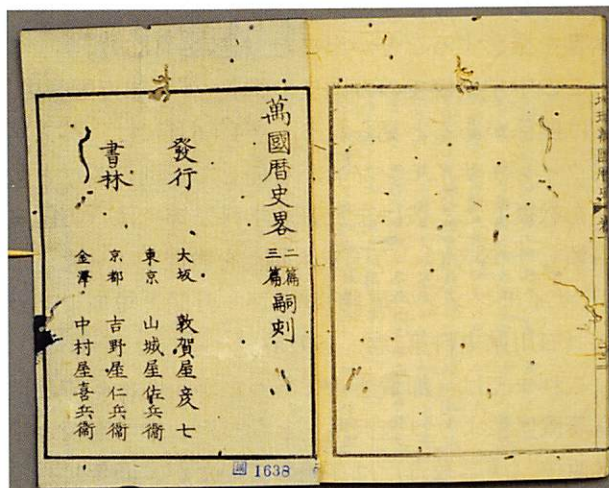 萬國暦史畧 二篇 三篇 嗣刻
發行
書林
大坂 敦賀屋彦七
東京 山城屋佐兵衞
京都 吉野屋仁兵衞
金澤 中村屋喜兵衞
圖 1638